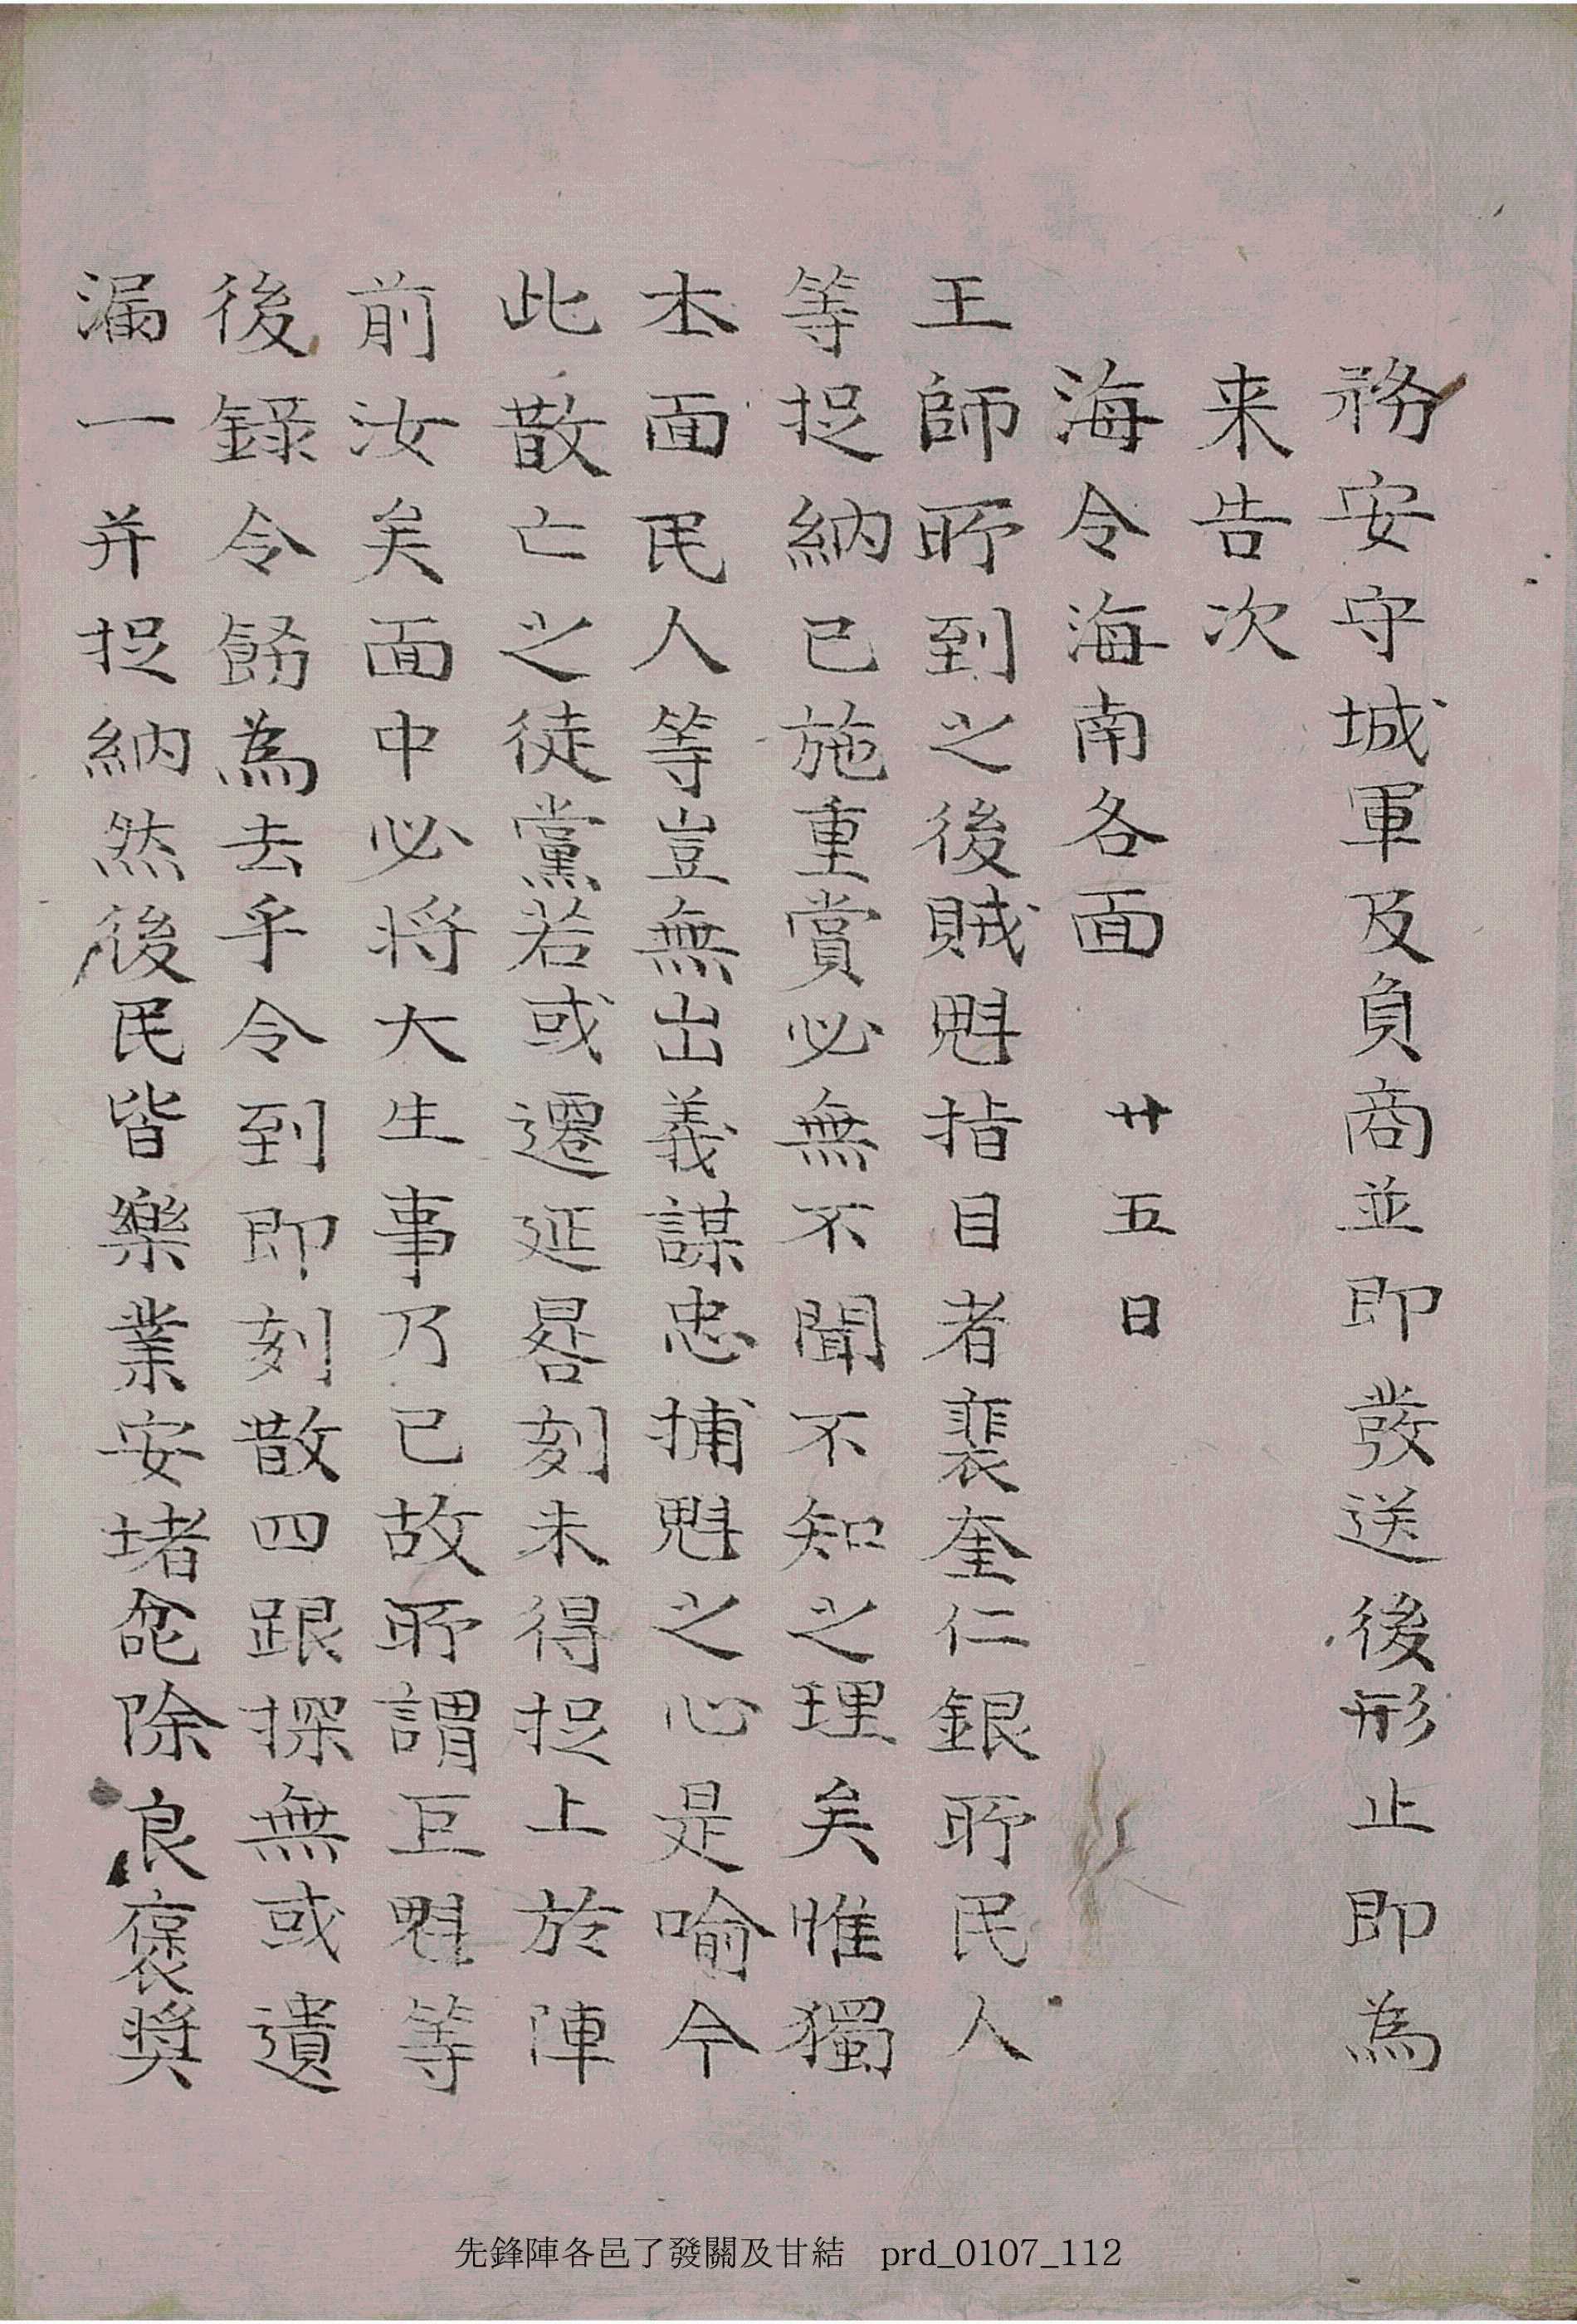 務安守城軍及負商並即發送後形止即為
来告次
海令海南各面 廿五日
王師所到之後賊魁指目者裴奎仁銀所民人
等捉納已施重賞必無不聞不知之理矣惟獨
本面民人等豈無出義謀忠捕魁之心是喻今
此散亡之徒黨若或遷延晷刻未得捉上於陣
前汝矣面中必将大生事乃已故所謂巨魁等
後錄令飭為去乎令到即刻散四跟探無或遺
漏一并捉納然後民皆樂業安堵叱除良褒奬
先鋒陣各邑了發關及甘結 prd_0107_112